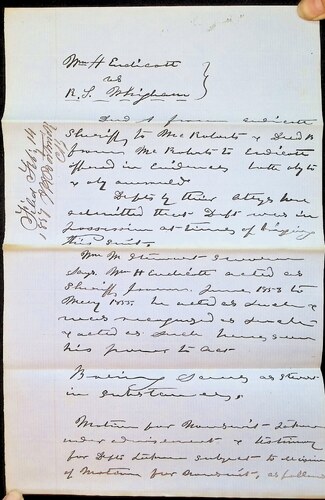 Wm H Endicott
vs
R. S. Whigham
Deed A from endicott
Sheriff to Mc Roberts & Deed B
from Mc Roberts to Endicott
offered in Evidence both objts
& obj overruled
Defts by their Attys here
admitted that Deft was in
possession at time of bringing
this Suit.
Wm M. Stewart Sworn
says. Wm H Endicott acted as
Sheriff from June 1853 to
May 1855. he acted as Such &
was recognized as Such
& acted as Such have seen
his power to act
Boeing Same as Stew
in Substance
Motion for Nonsuit taken
under advisement & testimony
for Defts taken subject to decision
of Motion for Nonsuit, as follows
Filed Feby 14
1857